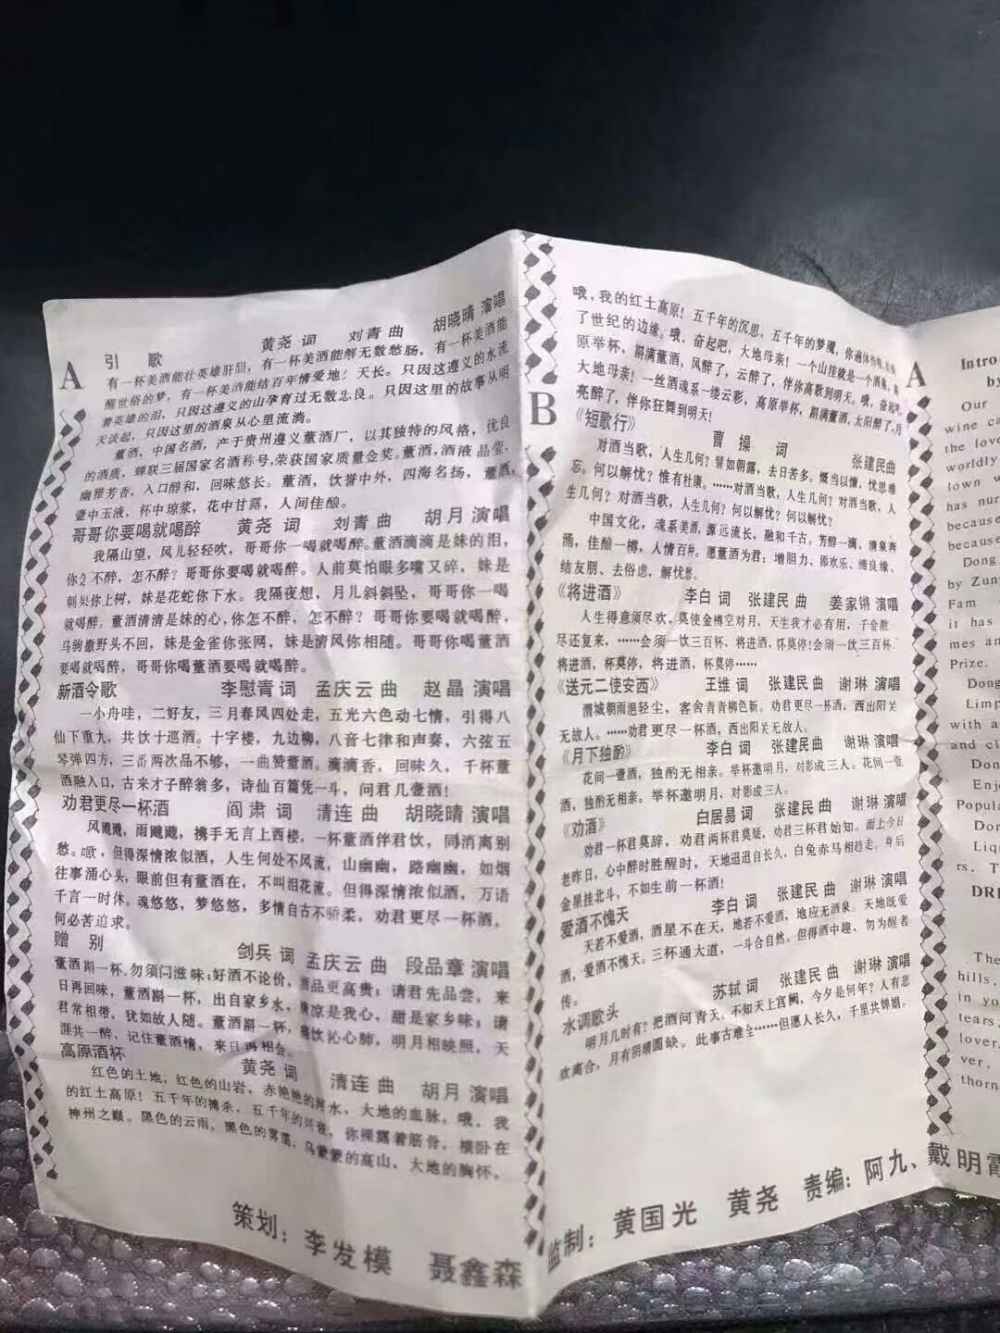 A
引 歌 黄尧 词 刘青 曲 胡晓晴 演唱
有一杯美酒能壮英雄肝胆,有一杯美酒能解无数愁肠,有一杯美酒能
醒世俗的梦,有一杯美酒能结百年情爱地!天长。只因这遵义的水流
着英雄的泪,只因这遵义的山孕育过无数忠良。只因这里的故事从明
天谈起,只因这里的酒泉从心里流淌。
董酒,中国名酒,产于贵州遵义董酒厂,以其独特的风格,优良
的酒质,蝉联三届国家名酒称号,荣获国家质量金奖。董酒,酒液晶莹,
幽雅芳香,入口醇和,回味悠长。董酒,饮誉中外,四海名扬,董酒,
壶中玉液,杯中琼浆,花中甘露,人间佳酿。
哥哥你要喝就喝醉 黄尧 词 刘青 曲 胡月 演唱
我隔山望,风儿轻轻吹,哥哥你一喝就喝醉。董酒滴滴是妹的泪,
你怎不醉,怎不醉?哥哥你要喝就喝醉。人前莫怕眼多嘴又碎,妹是
刺梨你上树,妹是花蛇你下水。我隔夜想,月儿斜斜坠,哥哥你一喝
就喝醉。董酒清清是妹的心,你怎不醉,怎不醉?哥哥你要喝就喝醉,
马驹撒野头不回,妹是金雀你张网,妹是清风你相随。哥哥你喝董酒
要喝就喝醉,哥哥你喝董酒要喝就喝醉。
新酒令歌 李慰青 词 孟庆云 曲 赵晶 演唱
一小舟哇,二好友,三月春风四处走,五光六色动七情,引得八
仙下重九,共饮十巡酒。十字楼,九边柳,八音七律和声奏,六弦五
琴弹四方,三番两次品不够,一曲赞董酒。滴滴香,回味久,千杯董
酒融入口,古来才子醉翁多,诗仙百篇凭一斗,问君几壶酒!
劝君更尽一杯酒 阎肃 词 清连 曲 胡晓晴 演唱
风飕飕,雨飕飕,携手无言上西楼,一杯董酒伴君饮,同消离别
愁。噢,但得深情浓似酒,人生何处不风流,山幽幽,路幽幽,如烟
往事涌心头,眼前但有董酒在,不叫泪花流。但得深情浓似酒,万语
千言一时休。魂悠悠,梦悠悠,多情自古不骄柔,劝君更尽一杯酒,
何必苦追求。
赠 别 剑兵 词 孟庆云 曲 段品章 演唱
董酒斟一杯,勿须问滋味;好酒不论价,酒品更高贵;请君先品尝,来
日再回味,董酒斟一杯,出自家乡水,凉是我心,甜是家乡味;请
君常相带,犹如故人随。董酒斟一杯,饮沁心肺,明月相映照,天
涯共一醉,记住董酒情,来日再相会。
高原酒杯 黄尧 词 清连 曲 胡月 演唱
红色的土地,红色的山岩,赤艳艳的河水,大地的血脉,哦,我
的红土高原!五千年的搏杀,五千年的兴衰,你裸露着筋骨,横卧在
神州之巅。黑色的云雨,黑色的雾霭,乌蒙蒙的高山,大地的胸怀,
B
哦,我的红土高原!五千年的沉思,五千年的梦魇,你遍体伤痕
了世纪的边缘。哦,奋起吧,大地母亲!一个山挂就是一个酒海,高
原举杯,斟满董酒,风醉了,云醉了,伴你高歌到明天。哦,奋起吧
大地母亲!一丝酒魂系一缕云彩,高原举杯,斟满董酒,太阳醉了,月
亮醉了,伴你狂舞到明天!
《短歌行》 曹操 词 张建民曲
对酒当歌,人生几何?譬如朝露,去日苦多,慨当以慷,忧思难
忘。何以解忧?惟有杜康。……对酒当歌,人生几何?对酒当歌,人
生几何?对酒当歌,人生几何?何以解忧?何以解忧?
中国文化,魂系美酒,源远流长,融和千古,芳醇一滴,清泉奔
涌,佳酿一樽,人情百川。愿董酒为君:增胆力、添欢乐、缔良缘、
结友朋、去俗虑,解忧愁。
《将进酒》 李白 词 张建民 曲 姜家锵 演唱
人生得意须尽欢,莫使金樽空对月,天生我才必有用,千金散
尽还复来,……会须一饮三百杯,将进酒,杯莫停!会须一饮三百杯,
将进酒,杯莫停,将进酒,杯莫停……
《送元二使安西》 王维 词 张建民 曲 谢琳 演唱
渭城朝雨浥轻尘,客舍青青柳色新。劝君更尽一杯酒,西出阳关
无故人。……劝君更尽一杯酒,西出阳关无故人。
《月下独酌》 李白 词 张建民曲 谢琳 演唱
花间一壶酒,独酌无相亲。举杯邀明月,对影成三人。花间一壶
酒,独酌无相亲。举杯邀明月,对影成三人。
《劝酒》 白居易 词 张建民 曲 谢琳 演唱
劝君一杯君莫辞,劝君两杯君莫疑,劝君三杯君始知。面上今日
老昨日,心中醉时胜醒时,天地迢迢自长久,白兔赤马相趁走,身后
金星挂北斗,不如生前一杯酒!
爱酒不愧天 李白 词 张建民 曲 谢琳 演唱
天若不爱酒,酒星不在天,地若不爱酒,地应无酒泉。天地既爱
酒,爱酒不愧天。三杯通大道,一斗合自然。但得酒中趣、勿为醒者
传。
水调歌头 苏轼 词 张建民 曲 谢琳 演唱
明月几时有?把酒问青天,不知天上宫阙,今夕是何年?人有悲
欢离合,月有阴晴圆缺。此事古难全……但愿人长久,千里共婵娟。
A
Intro
by
Our
wine c
the lov
worldly
town w
has nu
because
because
Dong
by Zun
Fam
it has
mes an
Prize.
Dong
Limp
with a
and cl
Don
Enje
Popul
Do
Liq
rs. T
DR
The
hills,
in yo
tears,
lover,
ver,
thorn
策划:李发模 聂鑫森 监制:黄国光 黄尧 责编:阿九、戴明